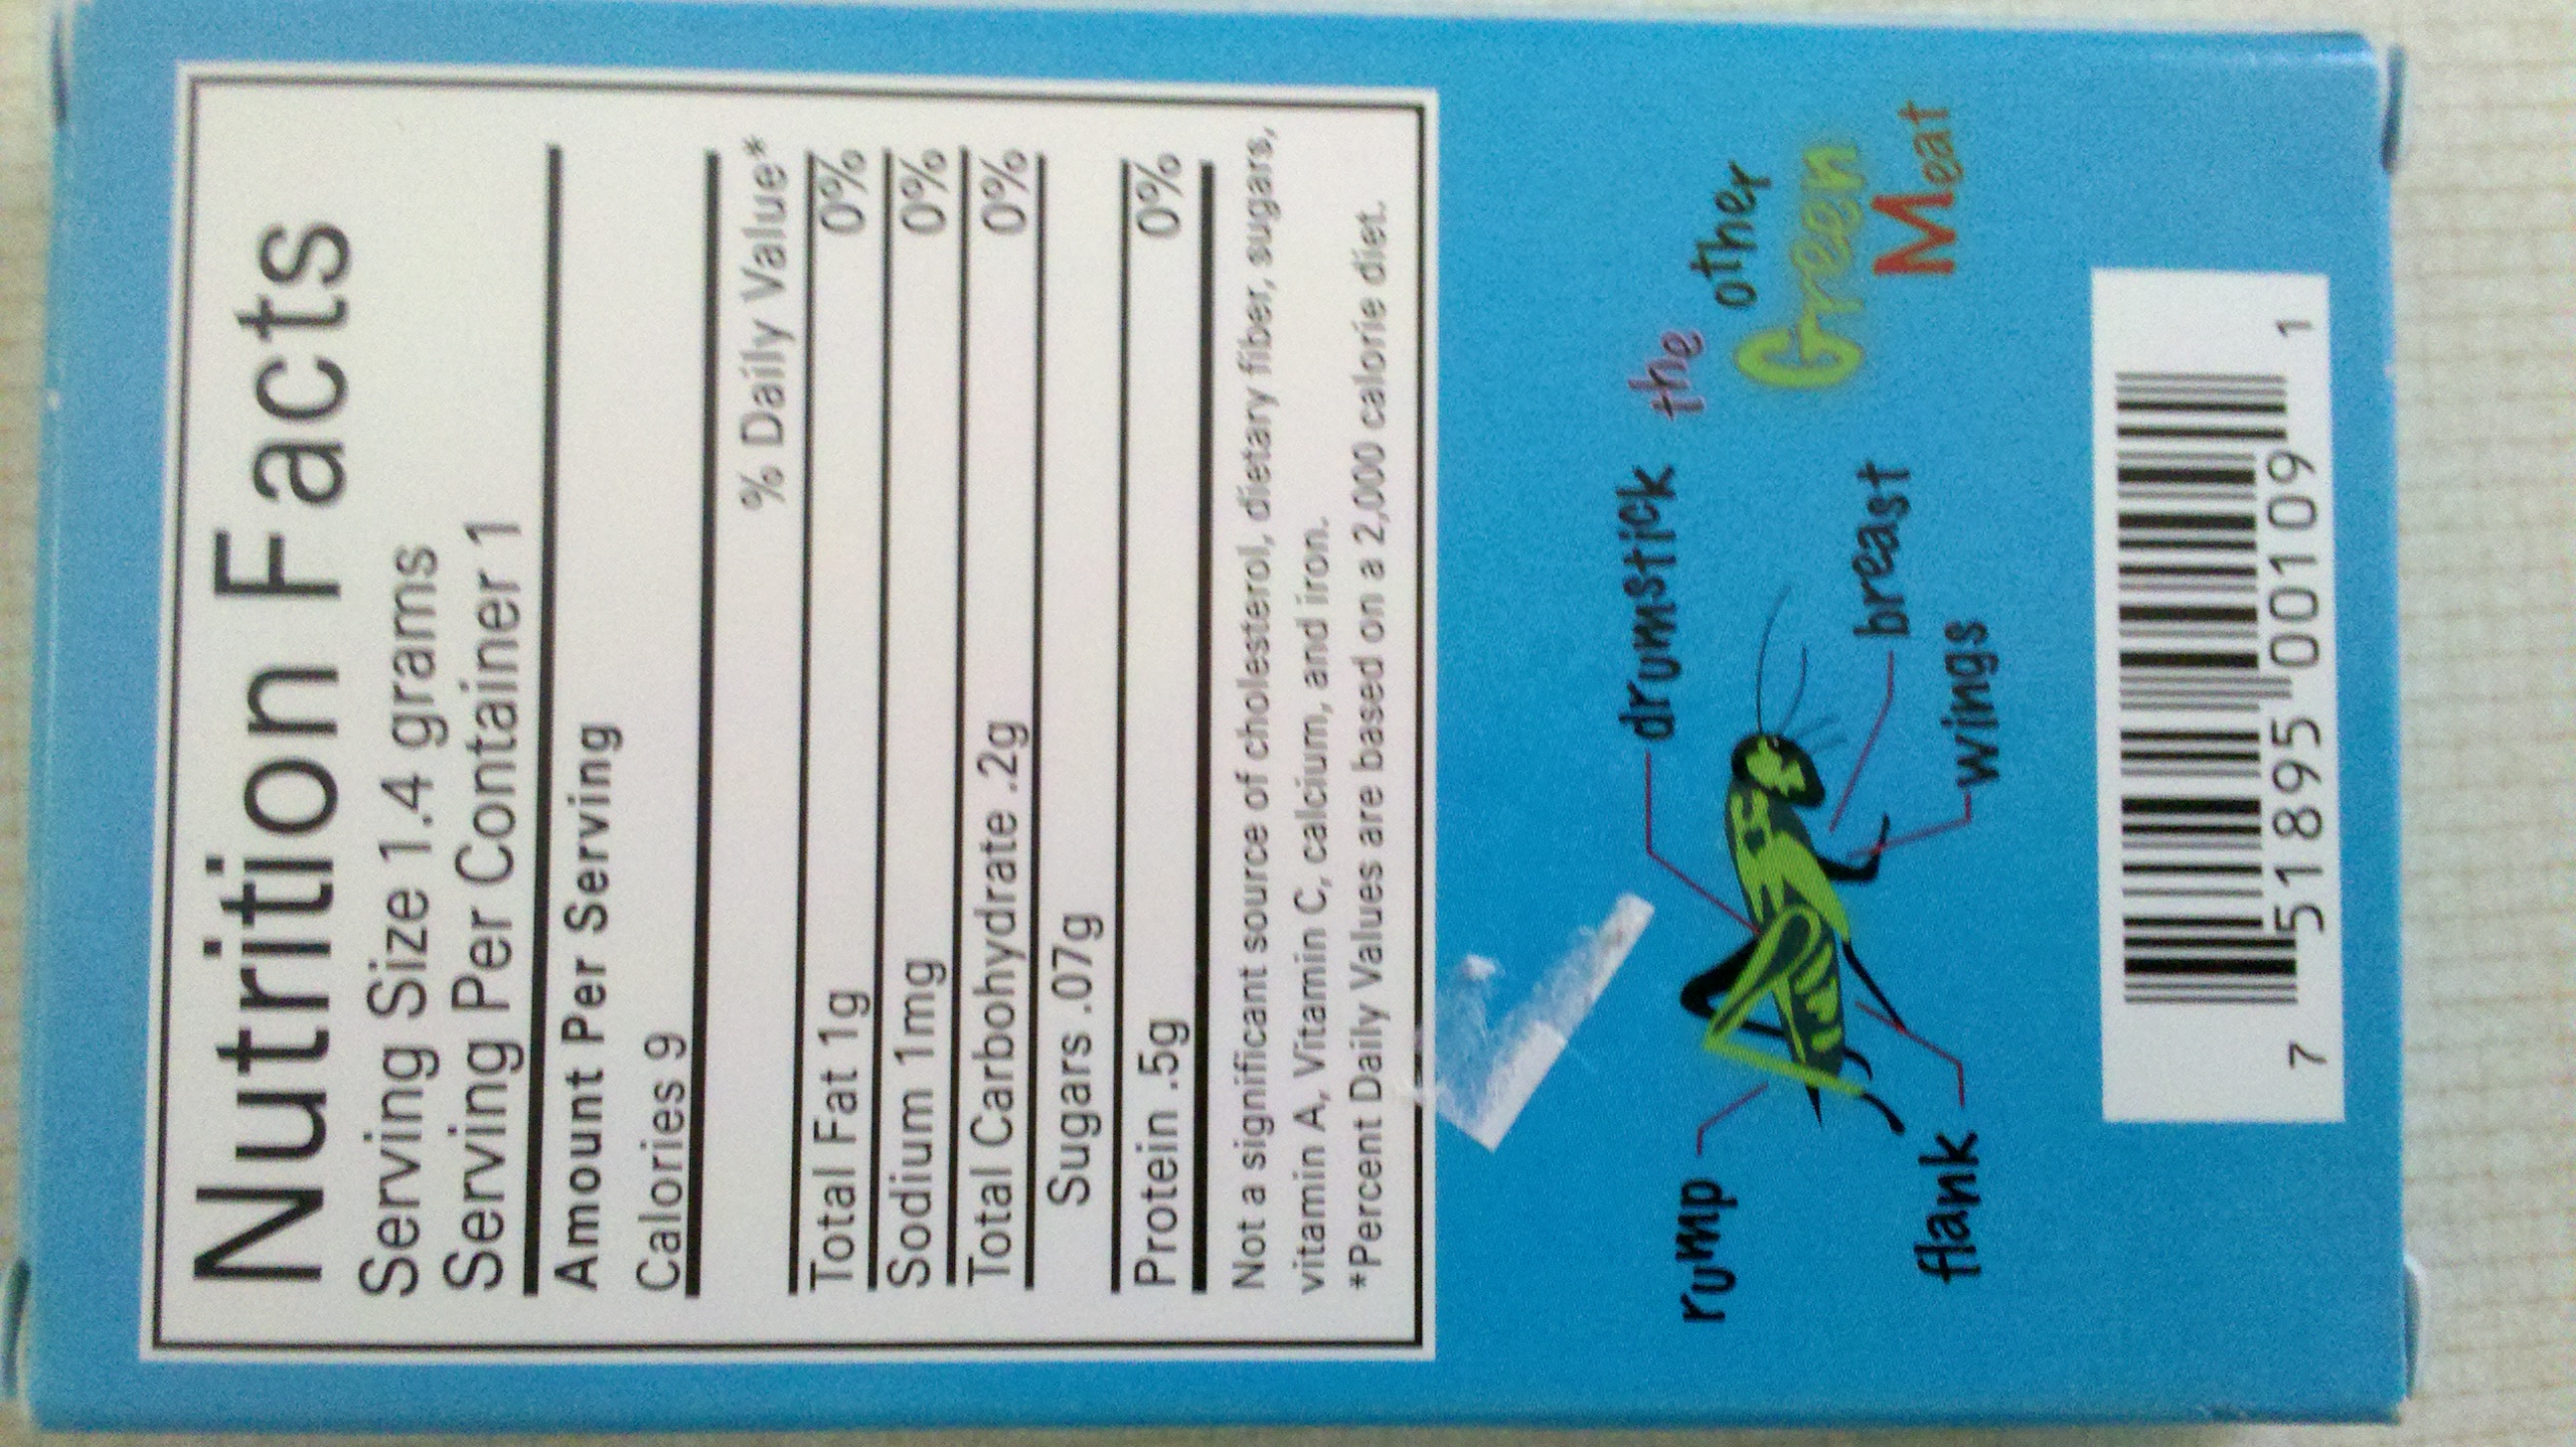 Nutrition Facts
Serving Size 1.4 grams
Serving Per Container 1
Amount Per Serving
Calories 9
% Daily Value*
Total Fat 1g 0%
Sodium 1mg 0%
Total Carbohydrate .2g 0%
Sugars .07g
Protein .5g 0%
Not a significant source of cholesterol, dietary fiber, sugars,
vitamin A, Vitamin C, calcium, and iron.
*Percent Daily Values are based on a 2,000 calorie diet.
drumstick
rump
breast
wings
flank
the
other
Green
Meat
7 51895 00109 1